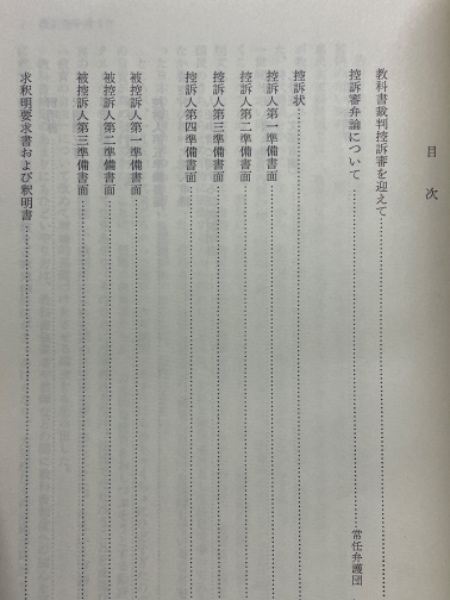 目次
教科書裁判控訴審を迎えて
控訴審弁論について 常任弁護団
控訴状
控訴人第一準備書面
控訴人第二準備書面
控訴人第三準備書面
控訴人第四準備書面
被控訴人第一準備書面
被控訴人第二準備書面
被控訴人第三準備書面
求釈明要求書および釈明書